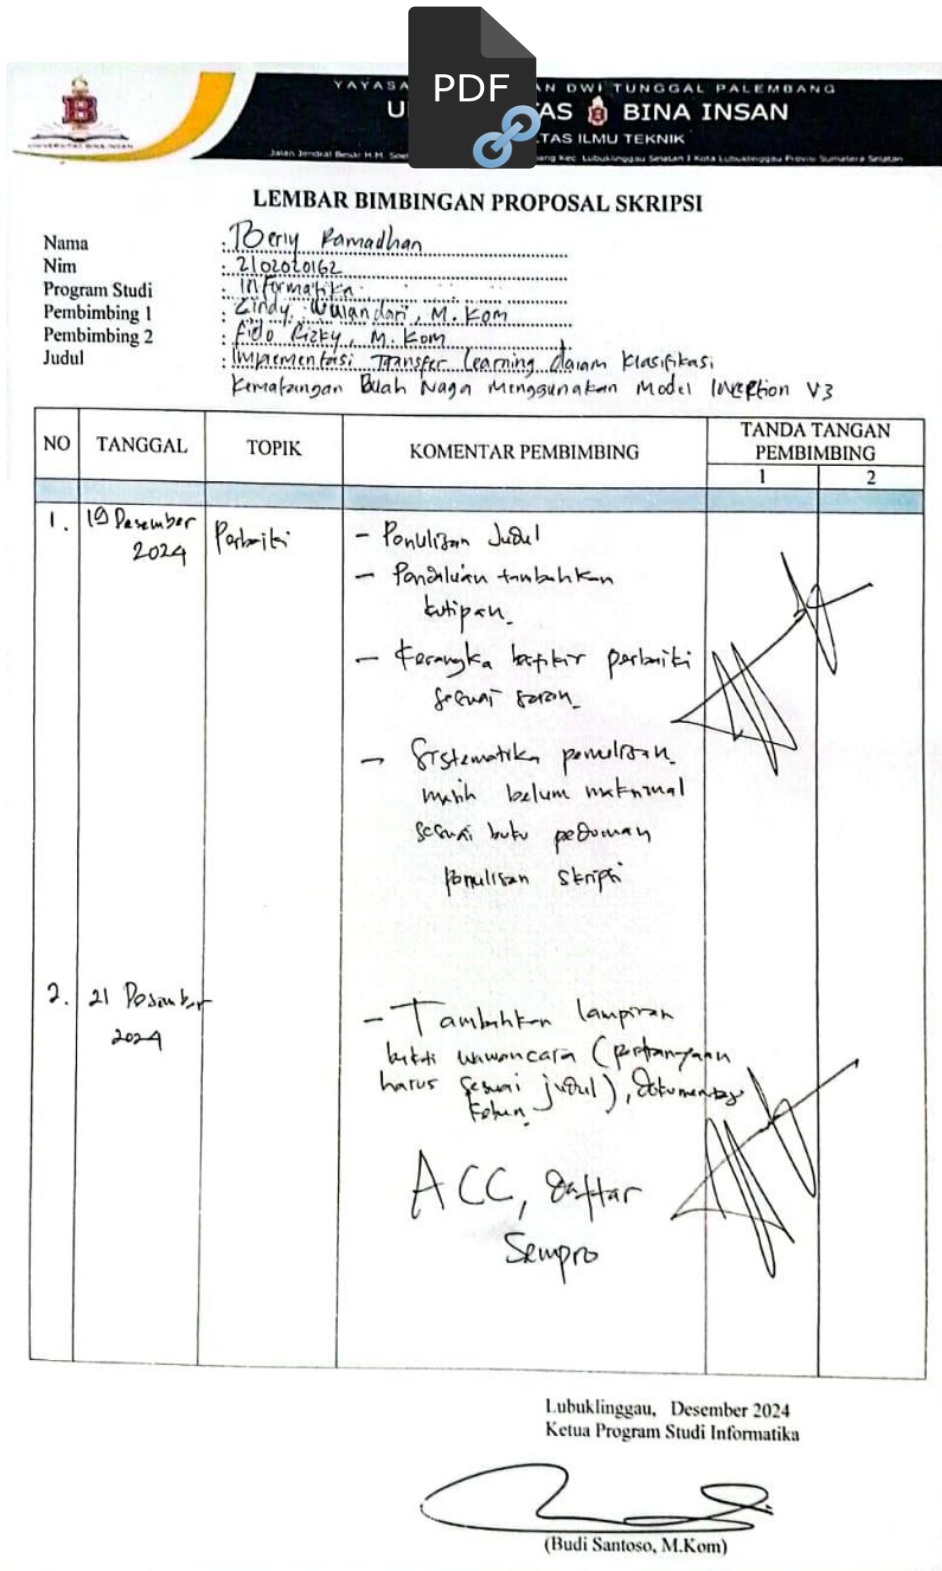 PDF
YAYASA AN DWI TUNGGAL PALEMBANG
U TAS BINA INSAN
LTAS ILMU TEKNIK
UNIVERSITAS BINA INSAN
Jalan Jendral Besar H.M. Soe ang Kec. Lubuklinggau Selatan I Kota Lubuklinggau Provisi Sumatera Selatan
LEMBAR BIMBINGAN PROPOSAL SKRIPSI
Nama : Beriy Ramadhan
Nim : 2102020162
Program Studi : Informatika
Pembimbing 1 : Zindy Wulandari, M.Kom
Pembimbing 2 : Fido Rizky, M.Kom
Judul : Implementasi Transfer Learning dalam Klasifikasi
Kematangan Buah Naga Menggunakan Model Inception V3
NO TANGGAL TOPIK KOMENTAR PEMBIMBING TANDA TANGAN PEMBIMBING
1 2
1. 19 Desember 2024 Perbaiki - Penulisan Judul
- tambahkan
kutipan
- Kerangka berfikir perbaiki
sesuai saran
- Sistematika penulisan
masih belum maksimal
sesuai buku pedoman
penulisan skripsi
2. 21 Desember 2024 - Tambahkan lampiran
bukti wawancara (pertanyaan
harus sesuai judul), dokumentasi
kebun
ACC, daftar
Sempro
Lubuklinggau, Desember 2024
Ketua Program Studi Informatika
(Budi Santoso, M.Kom)